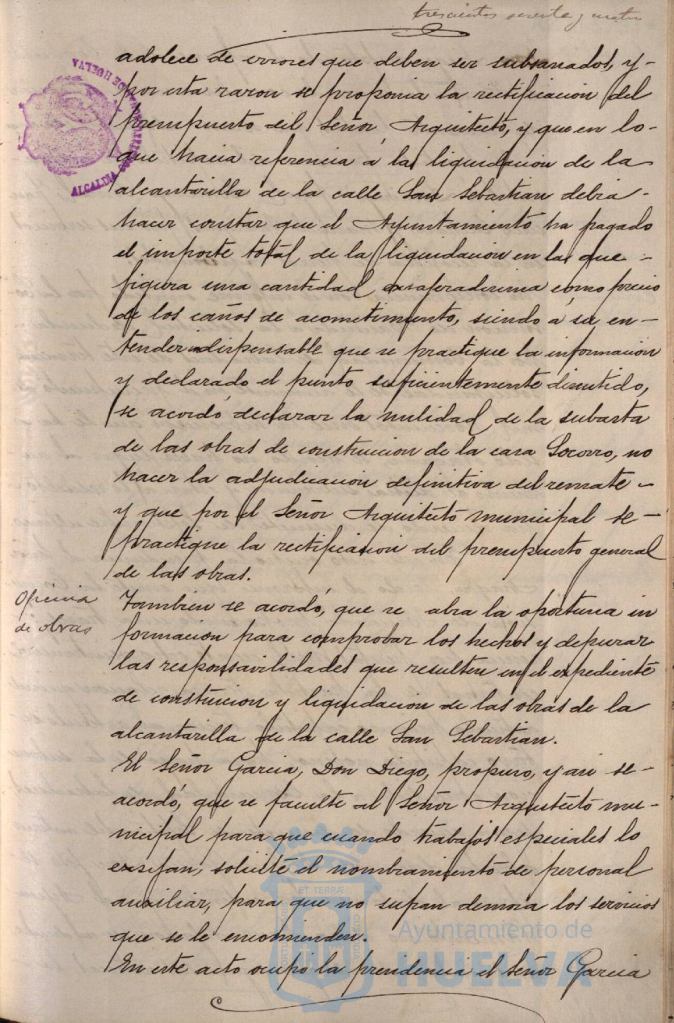 trescientos sesenta y cuatro
adolece de errores que deben ser subsanados, y
por esta razon se proponia la rectificacion del
presupuesto del Señor Arquitecto, y que en lo
que hacia referencia á la liquidacion de la
alcantarilla de la calle San Sebastian debia
hacer constar que el Ayuntamiento ha pagado
el importe total de la liquidacion en la que
figura una cantidad exageradisima como precio
de los caños de acometimiento, siendo á su en-
tender indispensable que se practique la informacion
y declarado el punto suficientemente discutido,
se acordó declarar la nulidad de la subasta
de las obras de construccion de la casa Socorro, no
hacer la adjudicacion definitiva del remate
y que por el Señor Arquitecto municipal se
practique la rectificacion del presupuesto general
de las obras.
Oficina
de obras
Tambien se acordó, que se abra la oportuna in
formacion para comprobar los hechos y depurar
las responsavilidades que resulten en el expediente
de construcion y liquidacion de las obras de la
alcantarilla de la calle San Sebastian.
El Señor Garcia, Don Diego, propuso, y asi se
acordó, que se faculte al Señor Arquitecto mu-
nicipal para que cuando trabajos especiales lo
exijan, solicite el nombramiento de personal
auxiliar, para que no sufran demora los servicios
que se le encomienden.
En este acto ocupó la presidencia el Señor Garcia
ALCALDIA
DE HUELVA
Ayuntamiento de
HUELVA